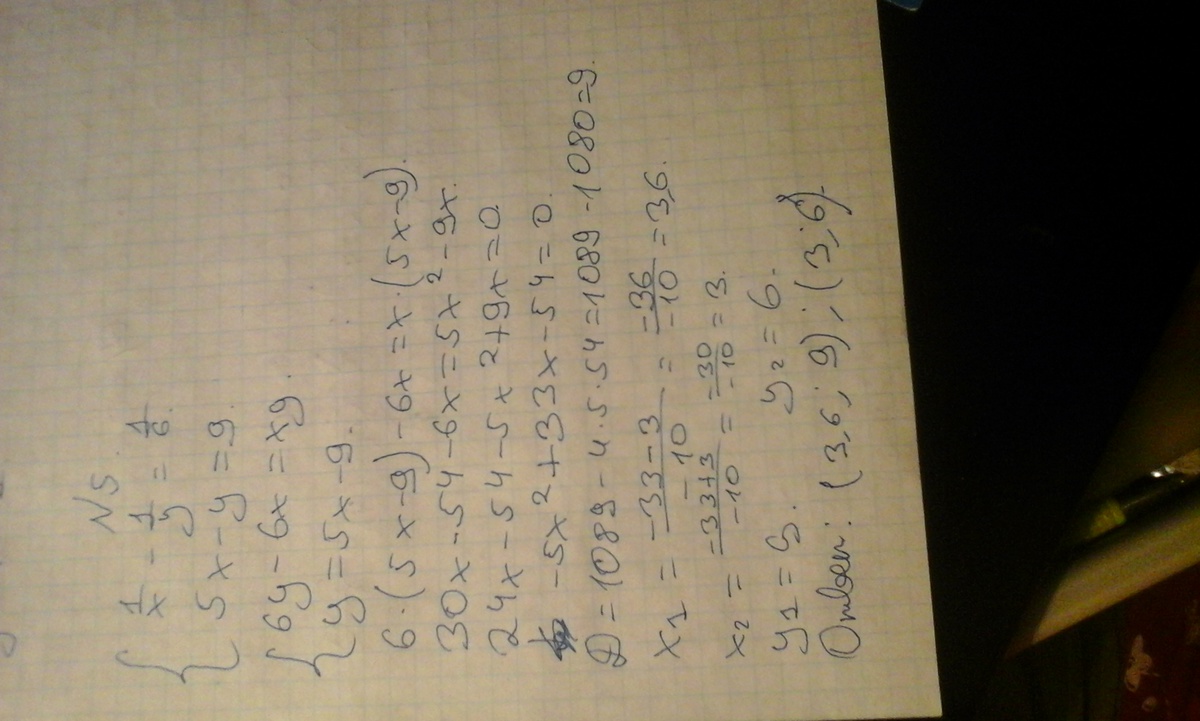 N5.
{ 1/x - 1/y = 1/6.
5x - y = 9.
{ 6y - 6x = xy.
y = 5x - 9.
6·(5x-9) - 6x = x·(5x-9).
30x - 54 - 6x = 5x² - 9x.
24x - 54 - 5x² + 9x = 0.
-5x² + 33x - 54 = 0.
D = 1089 - 4·5·54 = 1089 - 1080 = 9.
x₁ = (-33-3)/-10 = -36/-10 = 3,6.
x₂ = (-33+3)/-10 = -30/-10 = 3.
y₁ = 9. y₂ = 6.
Ответ: (3,6; 9); (3; 6).